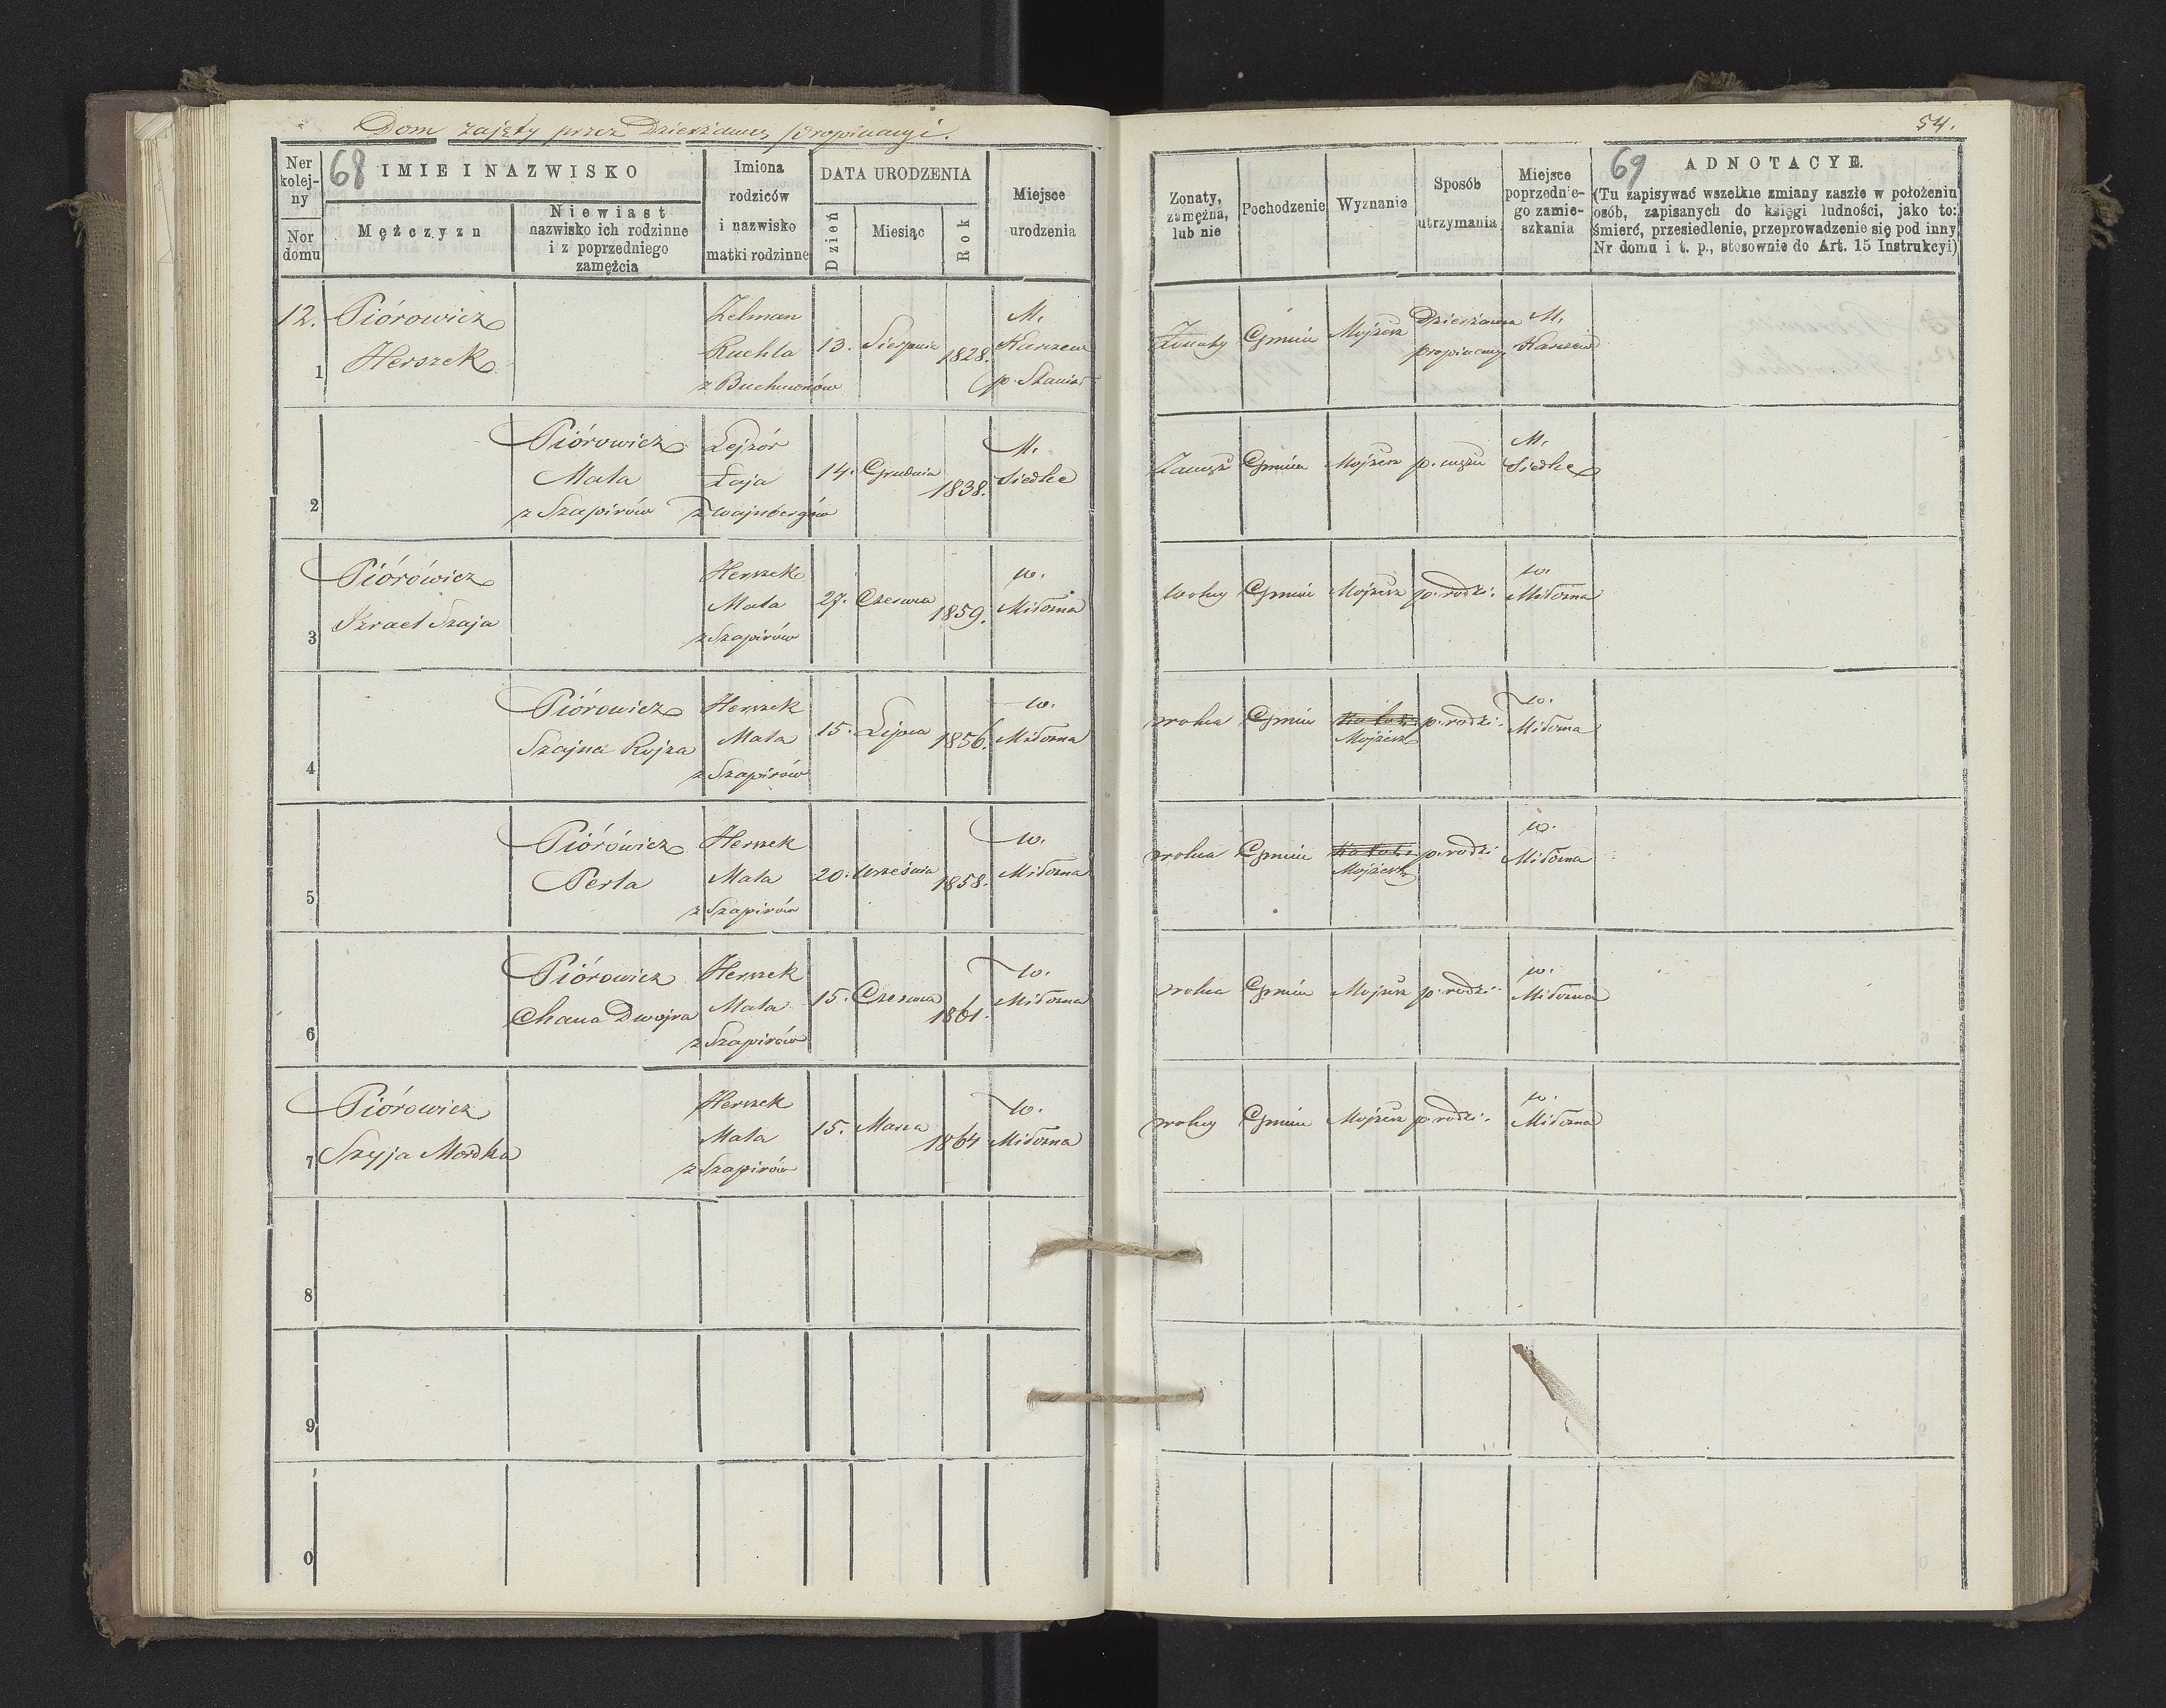 Dom zajęty przez Dzierżawcę propinacyi.
54.
68
69
Ner kolejny
Nor domu
IMIE I NAZWISKO
Mężczyzn
Niewiast
nazwisko ich rodzinne
i z poprzedniego
zamęźcia
Imiona
rodziców
i nazwisko
matki rodzinne
DATA URODZENIA
Dzień
Miesiąc
Rok
Miejsce
urodzenia
Zonaty,
zamężna,
lub nie
Pochodzenie
Wyznanie
Sposób
utrzymania
Miejsce
poprzednie-
go zamie-
szkania
ADNOTACYE.
(Tu zapisywać wszelkie zmiany zaszłe w położeniu
osób, zapisanych do księgi ludności, jako to:
śmierć, przesiedlenie, przeprowadzenie się pod inny
Nr domu i t. p., stosownie do Art. 15 Instrukcyi)
12.
1
Piórowicz
Herszek
Zelman
Ruchla
z Buchmanów
13. Sierpnia 1828.
M.
Karczew
p. Stanisł
Zonaty Gmin Mojżesz
Dzierżawca
propinacyi
M.
Karczew
2
Piórowicz
Mala
z Szapirów
Lejzór
Łaja
z Wajnbergów
14. Grudnia 1838.
M.
Siedlce
Zamęż Gmin Mojżesz p. mężu
M.
Siedlce
3
Piórówicz
Izrael Szaja
Herszek
Mala
z Szapirów
27. Czerwca 1859.
w.
Miłosna
wolny Gmin Mojżesz p. rodzi.
w.
Miłosna
4
Piórowicz
Szajna Rojza
Herszek
Mala
z Szapirów
15. Lipca 1856.
w.
Miłosna
wolna Gmin
Mojżesz
p. rodzi.
w.
Miłosna
5
Piórówicz
Perla
Herszek
Mala
z Szapirów
20. Września 1858.
w.
Miłosna
wolna Gmin
Mojżesz
p. rodzi
w.
Miłosna
6
Piórowicz
Chana Dwojra
Herszek
Mala
z Szapirów
15. Czerwca 1861.
w.
Miłosna
wolna Gmin Mojżesz p. rodzi.
w.
Miłosna
7
Piórowicz
Szyja Mordka
Herszek
Mala
z Szapirów
15. Marca 1864
w.
Miłosna
wolny Gmin Mojżesz p. rodzi.
w.
Miłosna
8
9
0